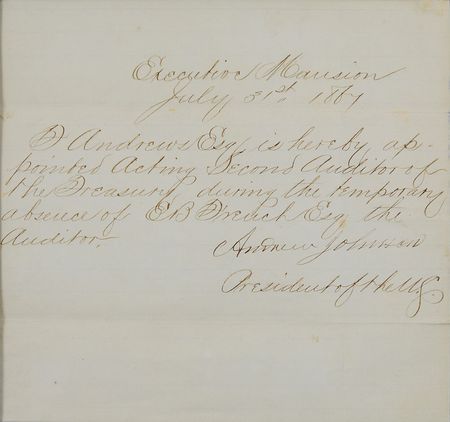 Executive Mansion
July 31st 1867
T Andrews Esq is hereby ap-
pointed Acting Second Auditor of
the Treasury during the temporary
absence of EB French Esq the
Auditor.
Andrew Johnson
President of the U.S.